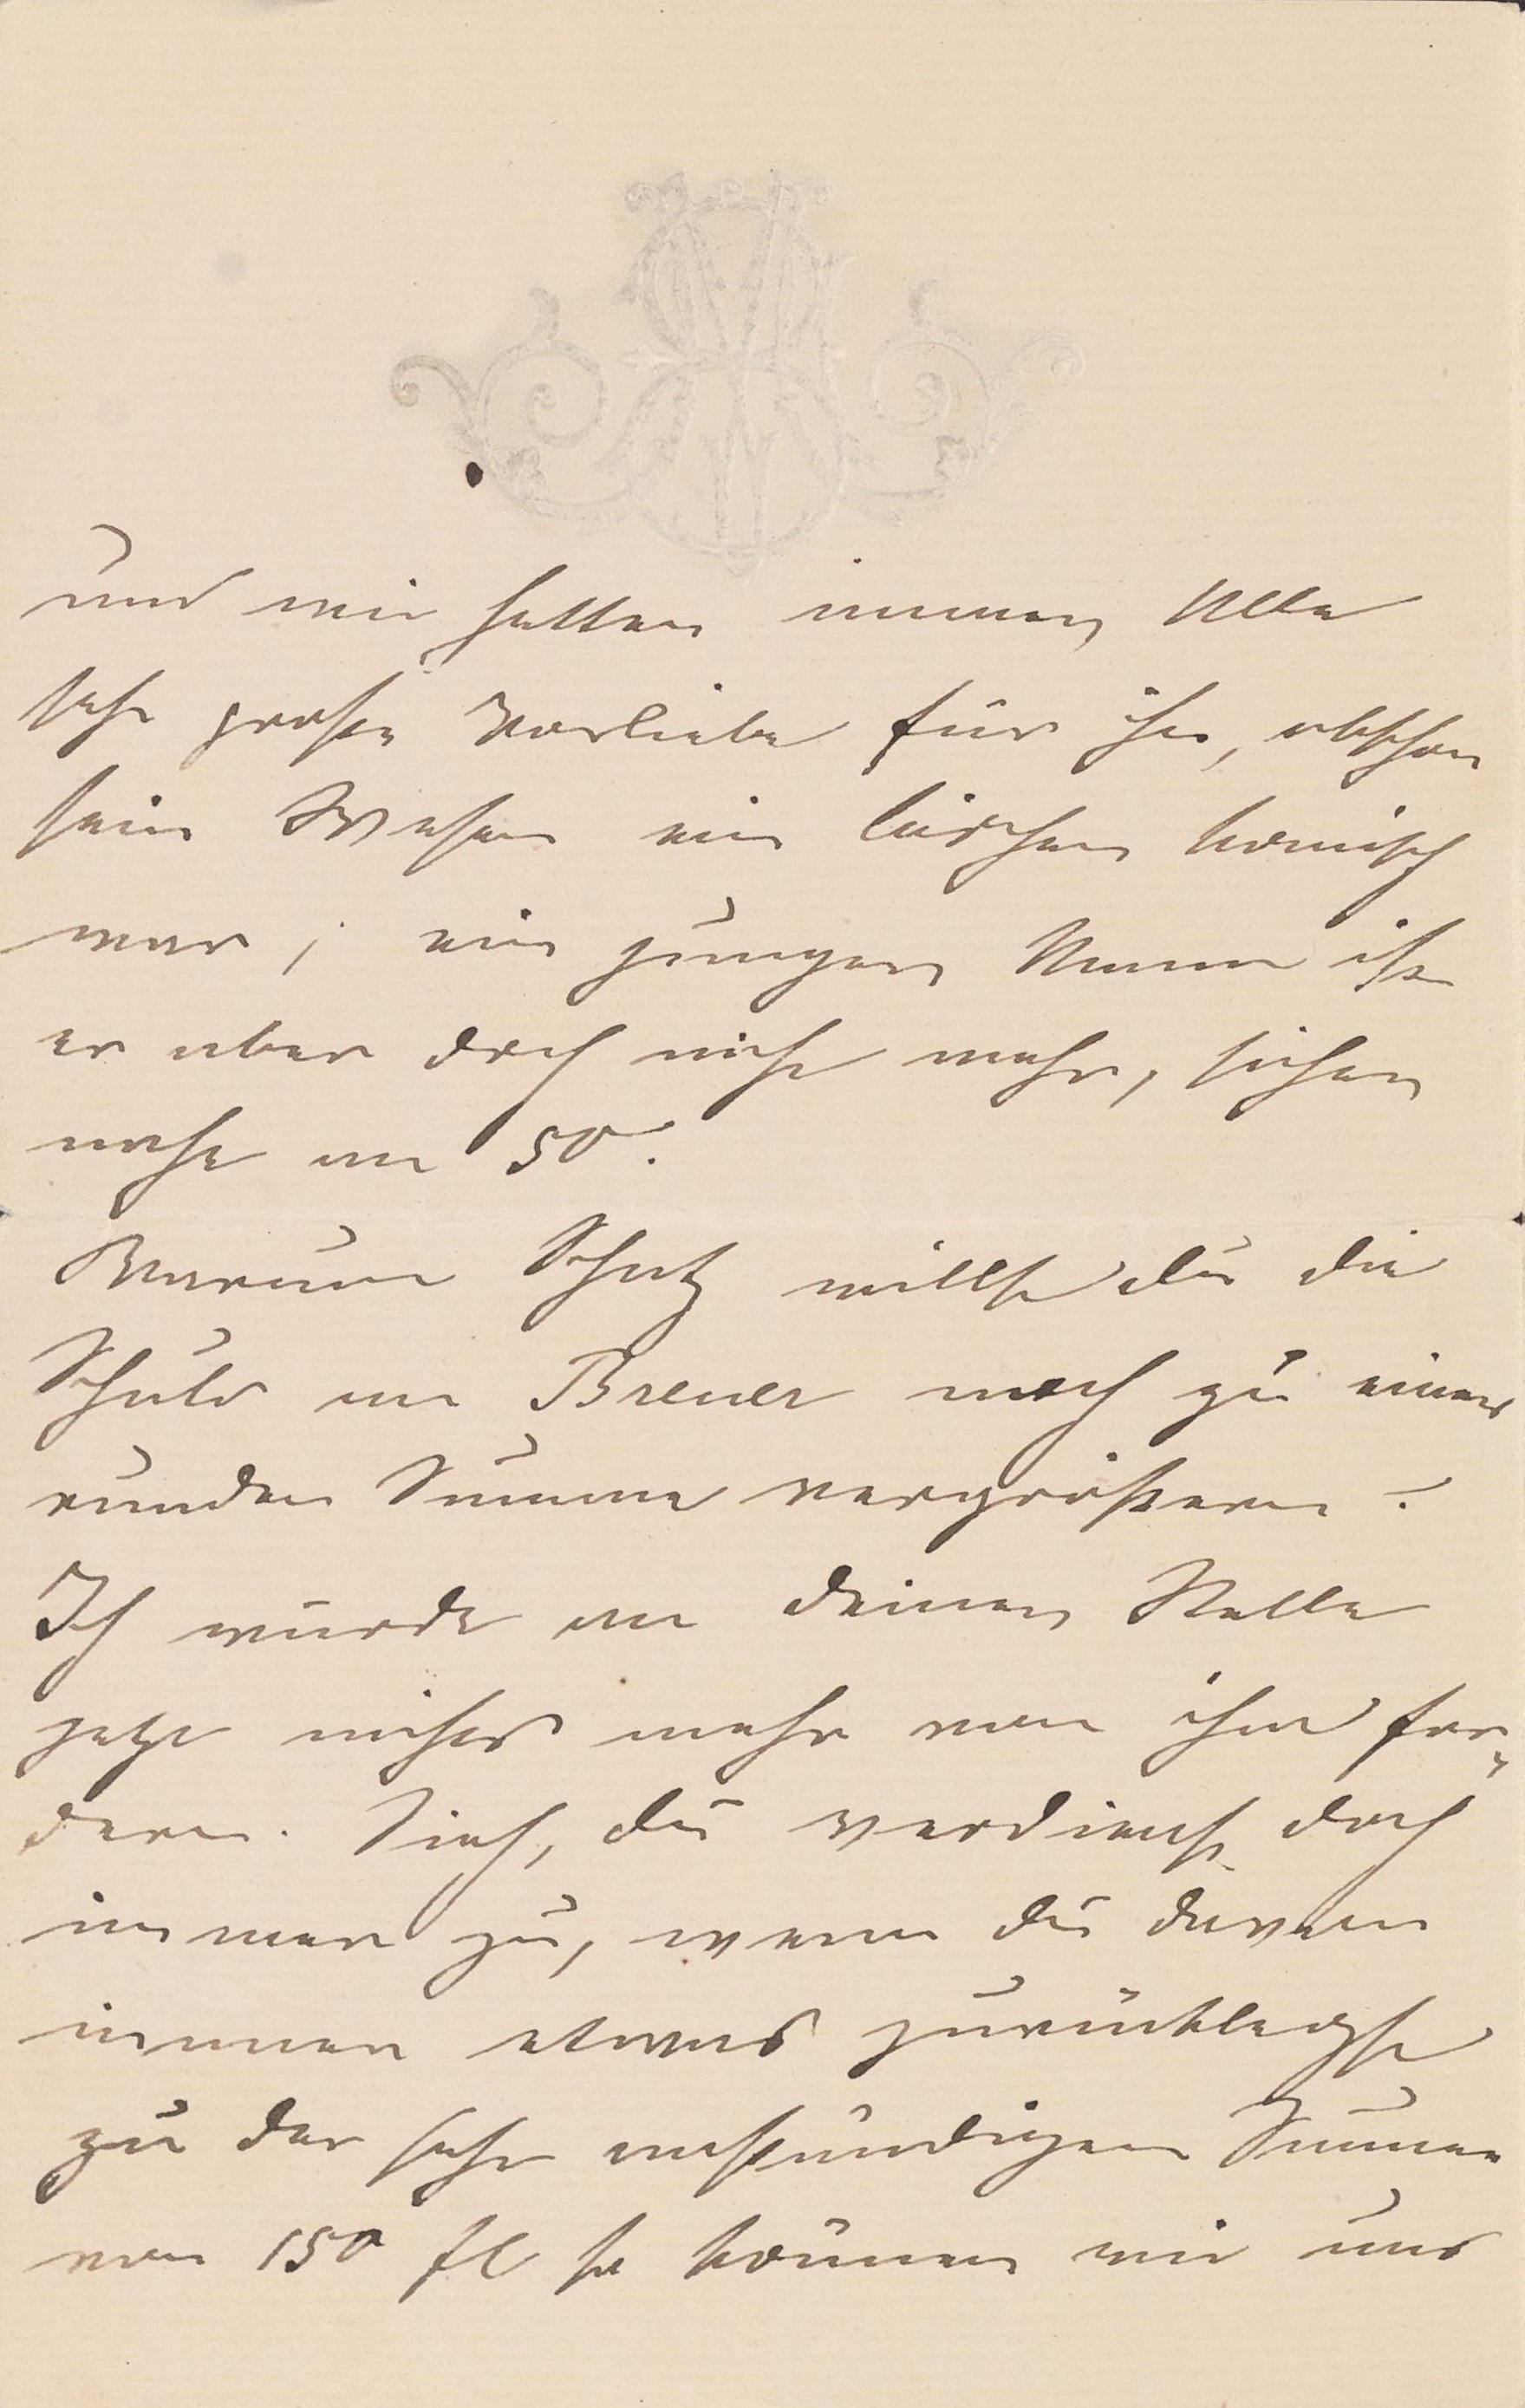 und wir hatten immer Alle
sehr große Vorliebe für ihn, obschon
sein Wesen ein bischen komisch
war; ein junger Mann ist
er aber doch nicht mehr, sicher
nahe an 50.
Warum Schatz willst du die
Schuld an Breuer noch zu einer
runden Summe vergrößern?
Ich würde an deiner Stelle
jetzt nichts mehr von ihm for-
dern. Sieh, du verdienst doch
immer zu, wenn du davon
immer etwas zurücklegst
zu der sehr anständigen Summe
von 150 fl so können wir uns